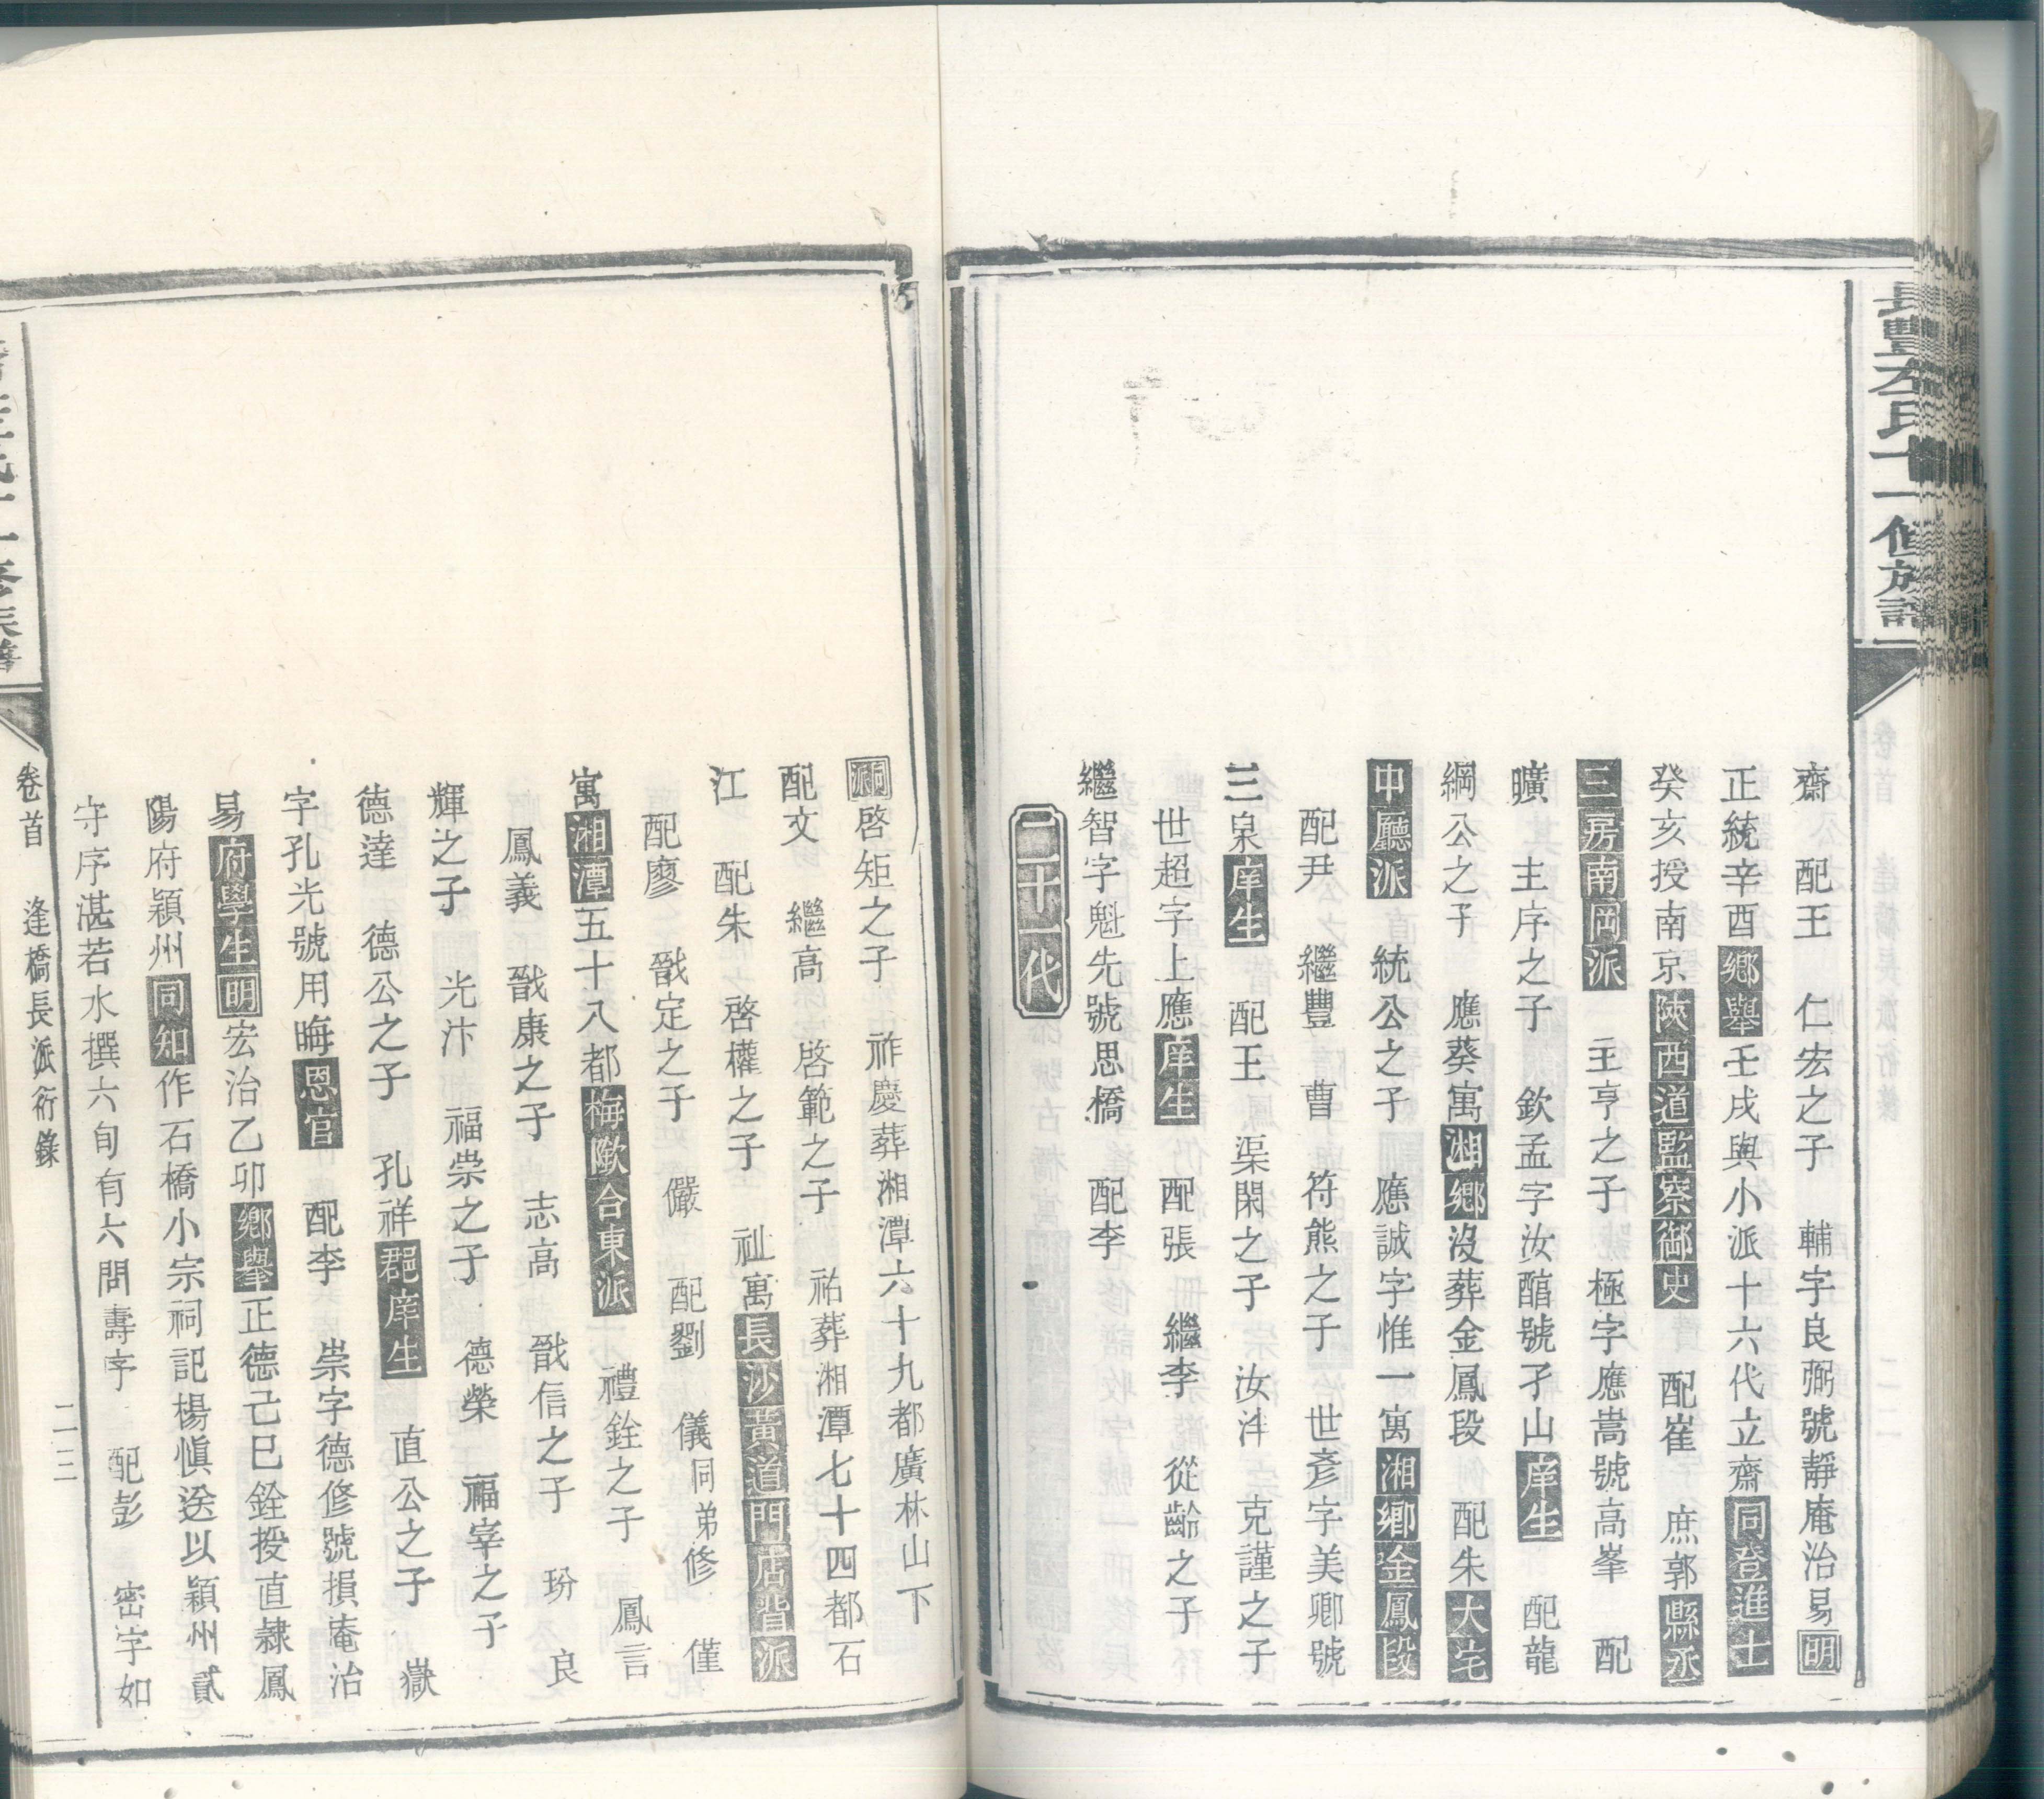 長豐左氏十一修族譜
齋 配王 仁宏之子 輔字良弼號靜庵治易明
正統辛酉鄉舉壬戌與小派十六代立齋同登進士
癸亥授南京陝西道監察御史 配崔 庶郭縣丞
三房南岡派 主亨之子 極字應嵩號高峯 配
曠 主序之子 欽孟字汝館號孑山庠生 配龍
綱公之子 應葵寓湘鄉沒葬金鳳段 配朱大宅
中廳派 統公之子 應誠字惟一寓湘鄉金鳳段
配尹 繼豐 曹 符熊之子 世彥字美卿號
三泉庠生 配王 渠閑之子 汝汼 克謹之子
世超字上應庠生 配張 繼李 從齡之子
繼智字魁先號思橋 配李
二十一代
洞派啓矩之子 祚慶葬湘潭六十九都廣林山下
配文 繼高 啓範之子 祐葬湘潭七十四都石
江 配朱 啓權之子 祉寓長沙黃道門店背派
配廖 戩定之子 儼 配劉 儀同弟修 僅
寓湘潭五十八都梅歟合東派 禮銓之子 鳳言
鳳義 戩康之子 志高 戩信之子 玢 良
輝之子 光汴 福崇之子 德榮 福宰之子
德達 德公之子 孔祥郡庠生 直公之子 嶽
字孔光號用晦恩官 配李 崇字德修號損庵治
易府學生明宏治乙卯鄉舉正德己巳銓授直隸鳳
陽府穎州同知作石橋小宗祠記楊愼送以穎州貳
守序湛若水撰六旬有六問壽序 配彭 密字如
卷首 逢橋長派衍錄 二三